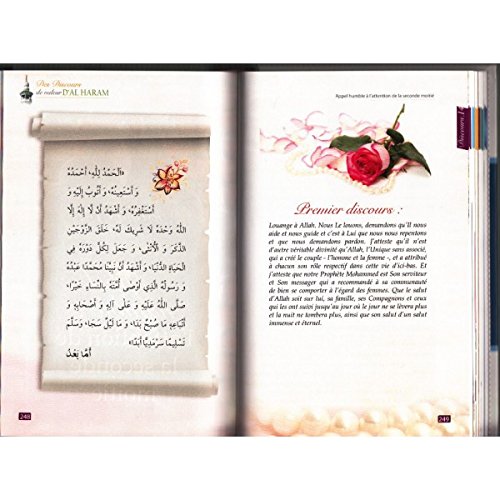 Des Discours
de valeur D'AL HARAM
«اَلْحَمْدُ لِلَّهِ، أَحْمَدُهُ
وَ أَسْتَعِينُهُ، وَ أَتُوبُ إِلَيْهِ وَ
أَسْتَغْفِرُهُ، وَ أَشْهَدُ أَنْ لَا إِلَهَ إِلَّا
اللَّهُ وَحْدَهُ لَا شَرِيكَ لَهُ، خَلَقَ الزَّوْجَيْنِ
الذَّكَرَ وَ الْأُنْثَى، وَ جَعَلَ لِكُلٍّ دَوْرَهُ فِي
الْحَيَاةِ الدُّنْيَا، وَ أَشْهَدُ أَنَّ نَبِيَّنَا مُحَمَّدًا عَبْدُهُ
وَ رَسُولُهُ الَّذِي أَوْصَى أُمَّتَهُ بِالنِّسَاءِ خَيْرًا،
صَلَّى اللَّهُ عَلَيْهِ وَ عَلَى آلِهِ وَ أَصْحَابِهِ وَ
أَتْبَاعِهِ مَا صُبْحٌ بَدَا، وَ مَا لَيْلٌ سَجَا، وَسَلَّمَ
تَسْلِيمًا سَرْمَدِيًّا أَبَدًا».
أَمَّا بَعْدُ
248
Appel humble à l'attention de la seconde moitié
Discours 1
Premier discours :
Louange à Allah. Nous Le louons, demandons qu'Il nous
aide et nous guide et c'est à Lui que nous nous repentons
et que nous demandons pardon. J'atteste qu'il n'est
d'autre véritable divinité qu'Allah, l'Unique sans associé,
qui a créé le couple - l'homme et la femme -, et a attribué
à chacun son rôle respectif dans cette vie d'ici-bas. Et
j'atteste que notre Prophète Mohammed est Son serviteur
et Son messager qui a recommandé à sa communauté
de bien se comporter à l'égard des femmes. Que le salut
d'Allah soit sur lui, sa famille, ses Compagnons et ceux
qui les ont suivis tant que le jour continue de se lever plus
et la nuit ne tombera plus, ainsi que son salut d'un salut
immense et éternel.
249